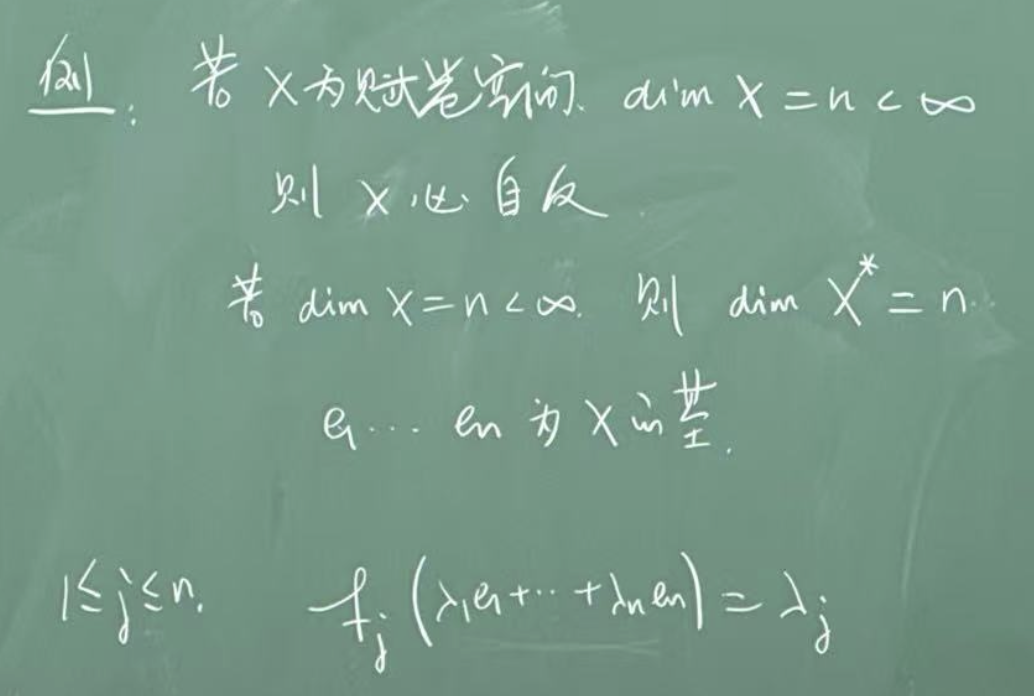 例: 若 X 为赋范空间. dim X = n < ∞
则 X 必自反
若 dim X = n < ∞. 则 dim X* = n.
e₁ ... eₙ 为 X 的基.
1 ≤ j ≤ n. f_j (λ₁e₁ + ... + λₙeₙ) = λ_j